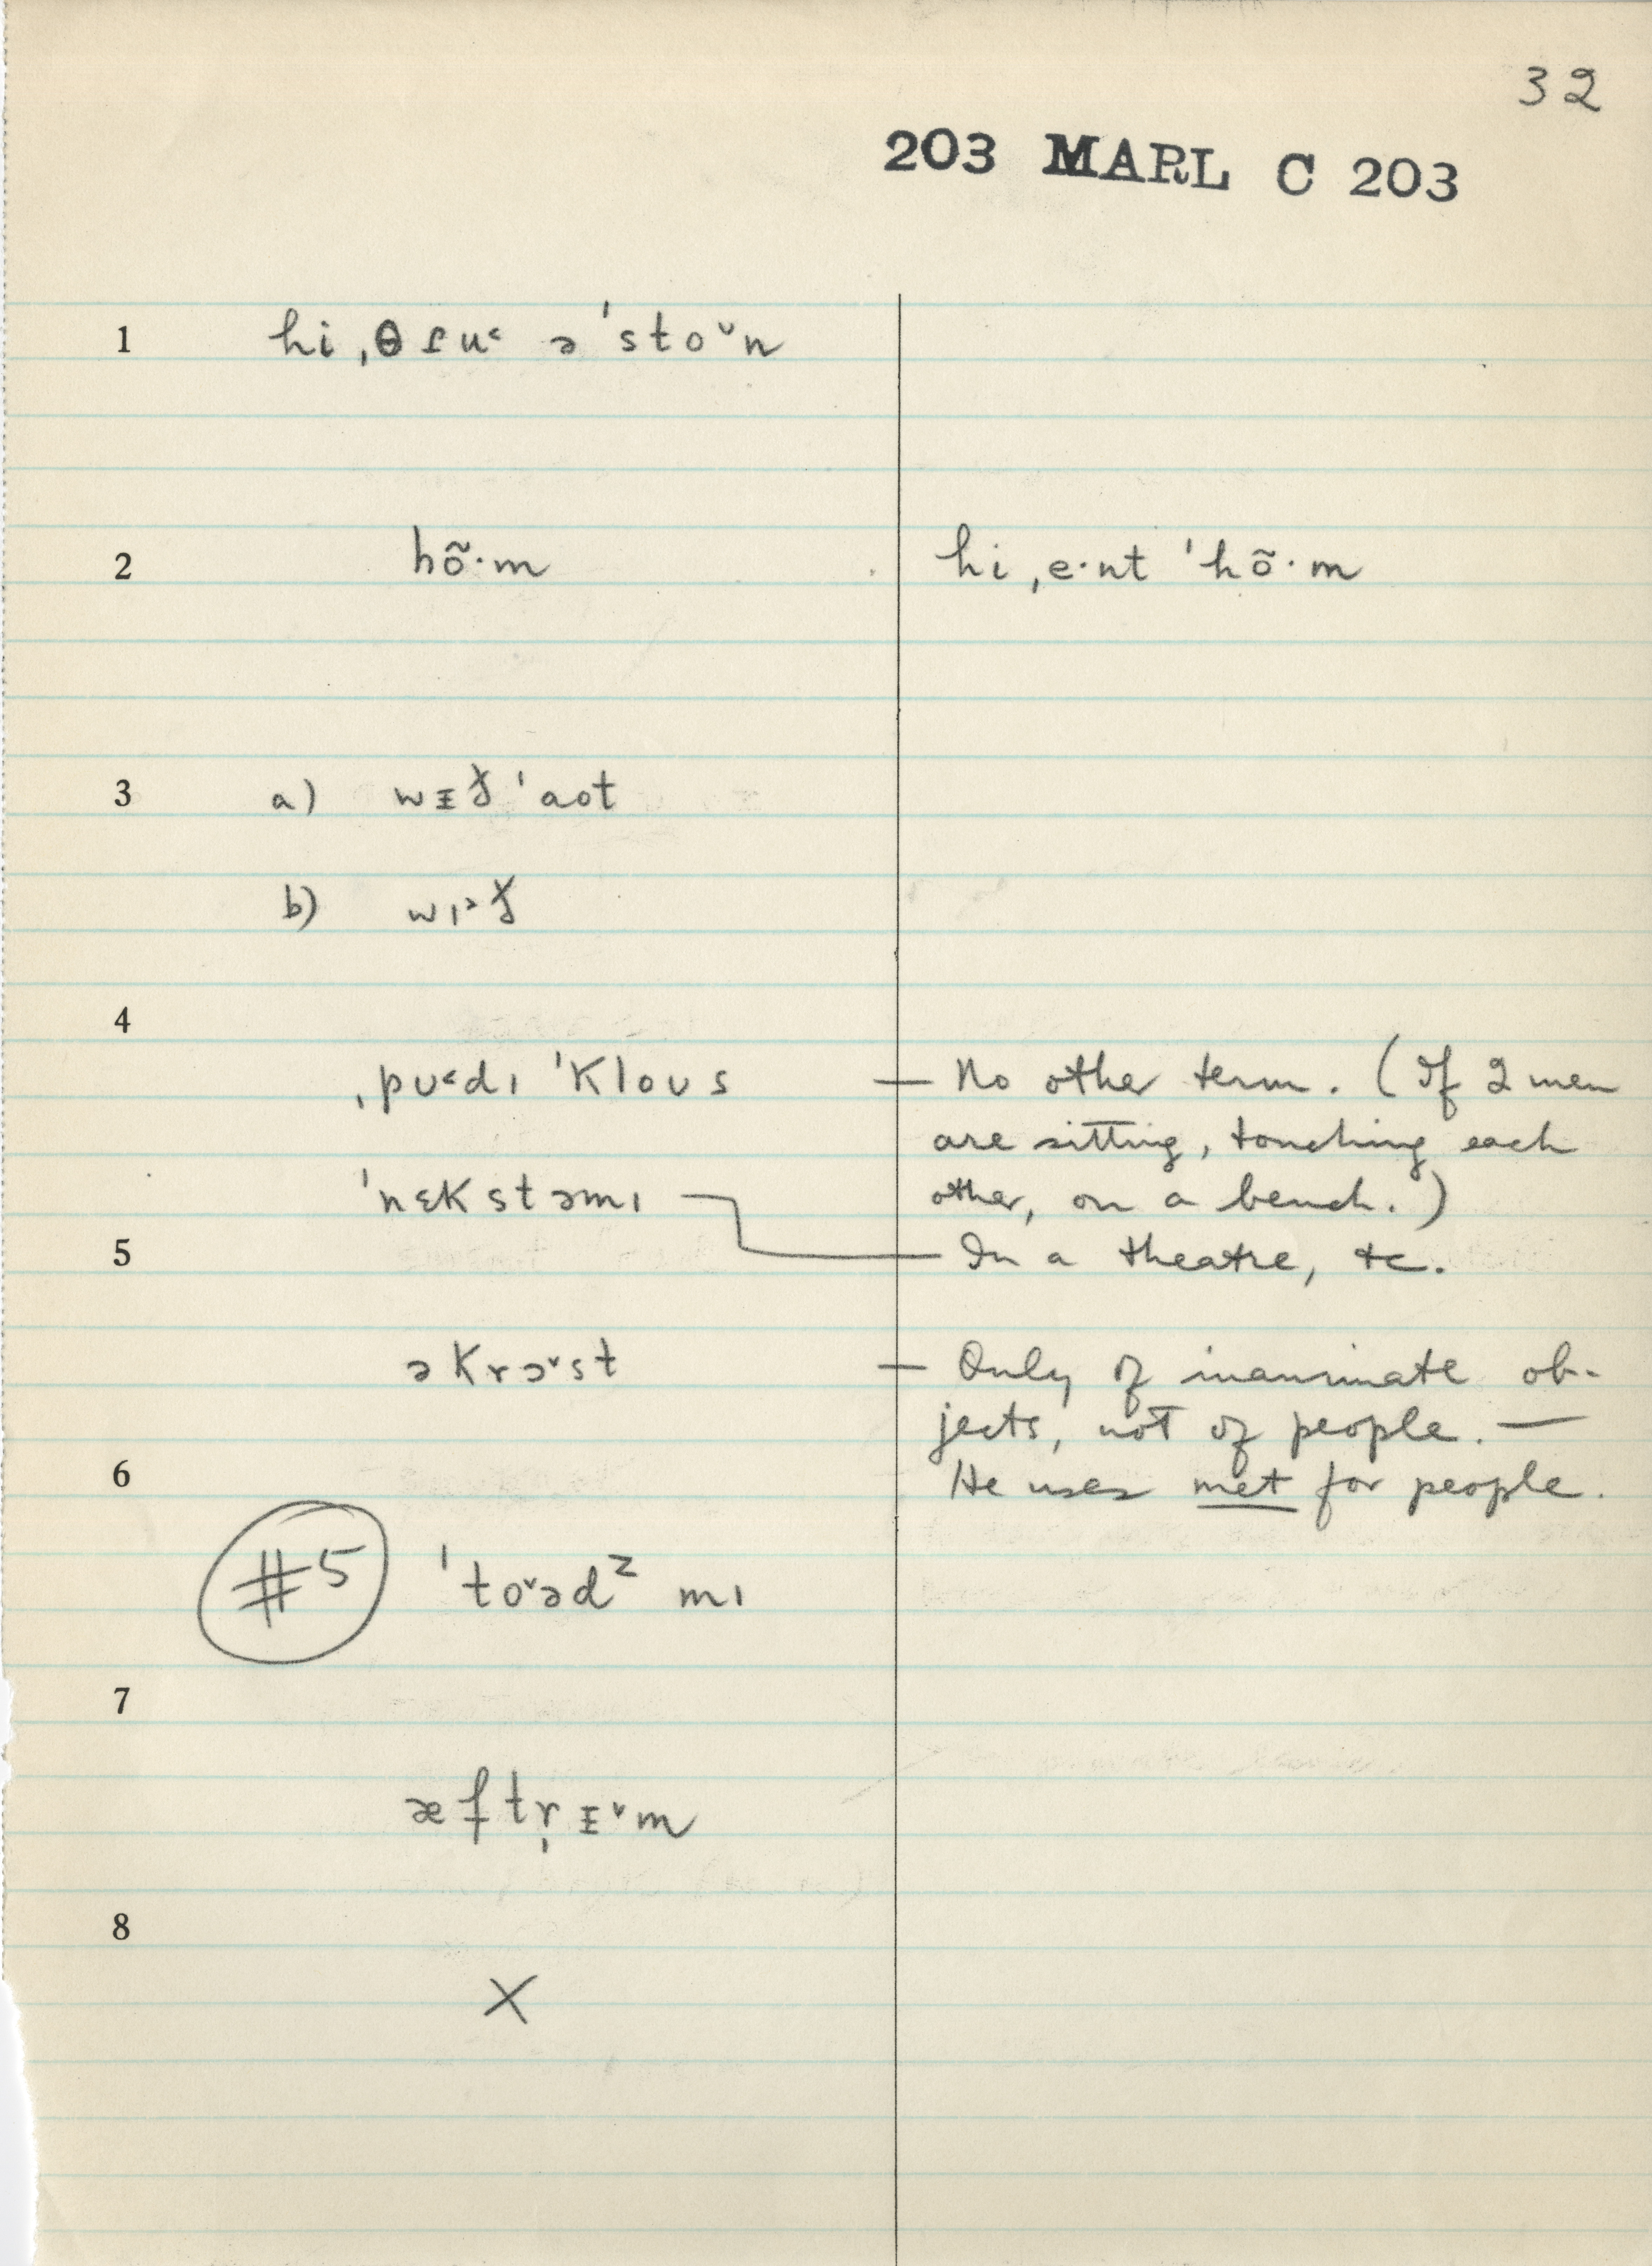 32
203 MARL C 203
1 hi ˌθɾu˂ ə ˈstoˇn
2 hõ·m hi ˌe·nt ˈhõ·m
3 a) wᵻð ˈaot
b) wɪ˃ð
4
ˌpʊ˂dɪ ˈkloʊs — No other term. (If 2 men
are sitting, touching each
ˈnɛkstəmɪ other, on a bench.)
5 — In a theatre, etc.
əkrɔˇst — Only of inanimate ob-
jects, not of people. —
6 He uses met for people.
#5 ˈtoˇədᶻ mɪ
7
æftr̩ᵻˇm
8
X